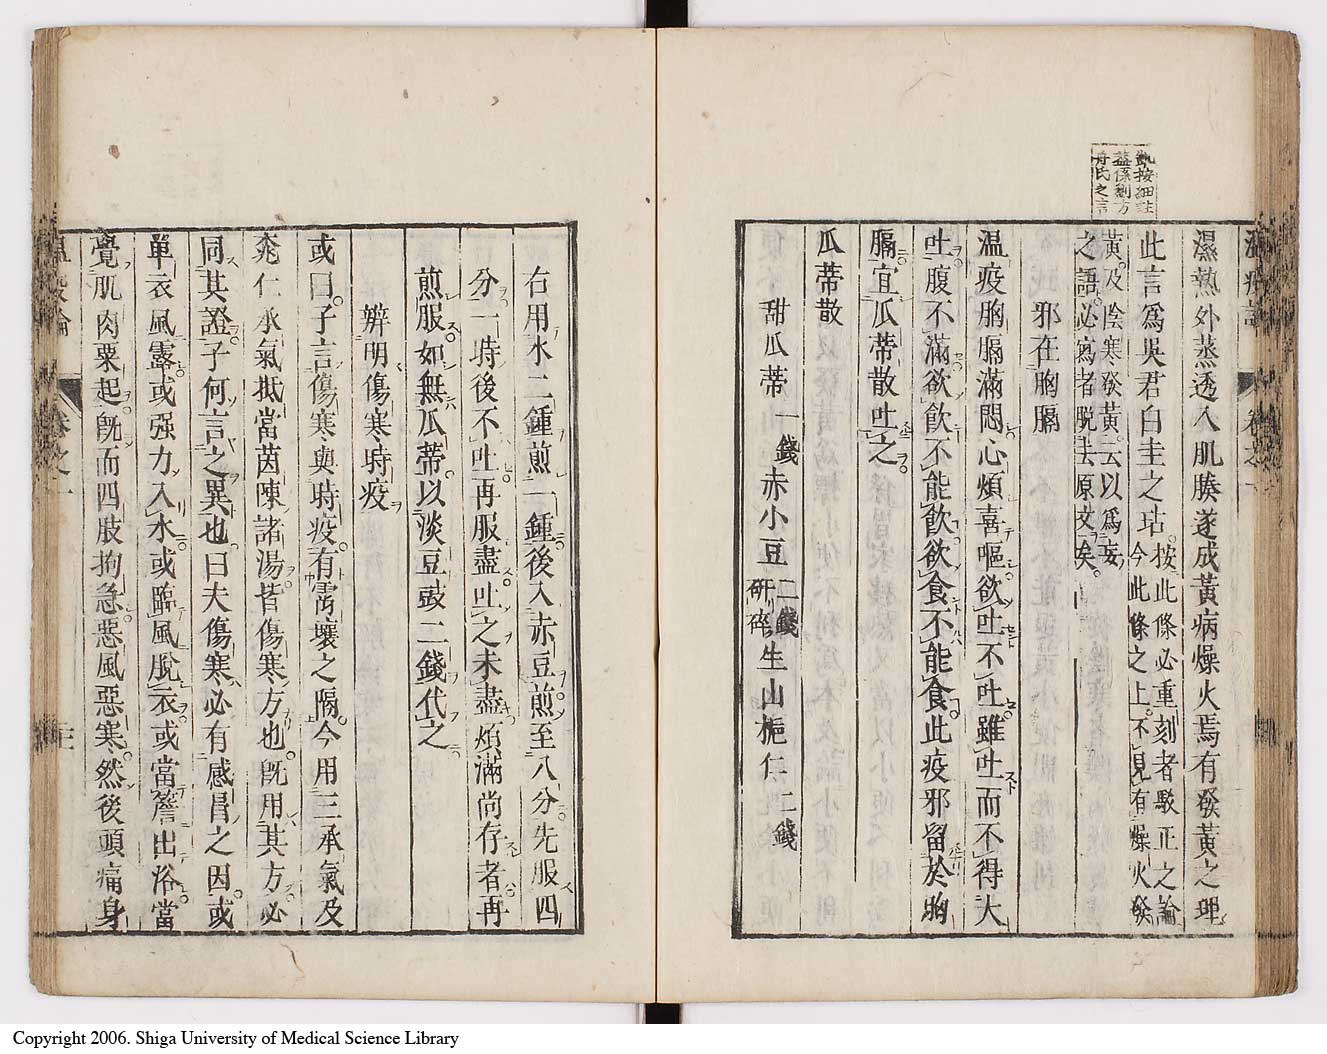 凱按細註
蓋係剩方
舟氏之言
濕熱外蒸透入肌腠遂成黃病燥火焉有發黃之理
此言爲吳君白圭之玷按此條必重刻者駁正之論今此條之上不見有燥火發
黃及陰寒發黃云以爲妄
之語必寫者脫去原文矣
邪在胸膈
温疫胸膈滿悶心煩喜嘔欲吐不吐雖吐而不得大
吐腹不滿欲飲不能飲欲食不能食此疫邪留於胸
膈宜瓜蒂散吐之
瓜蒂散
甜瓜蒂一錢赤小豆二錢研碎生山梔仁二錢
右用水二鍾煎一鍾後入赤豆煎至八分先服四
分一時後不吐再服盡吐之未盡煩滿尚存者再
煎服如無瓜蒂以淡豆豉二錢代之
辨明傷寒時疫
或曰子言傷寒與時疫有霄壤之隔今用三承氣及
桃仁承氣抵當茵陳諸湯皆傷寒方也既用其方必
同其證子何言之異也曰夫傷寒必有感冒之因或
單衣風露或强力入水或臨風脫衣或當簷出浴當
覺肌肉粟起既而四肢拘急惡風惡寒然後頭痛身
卷之一